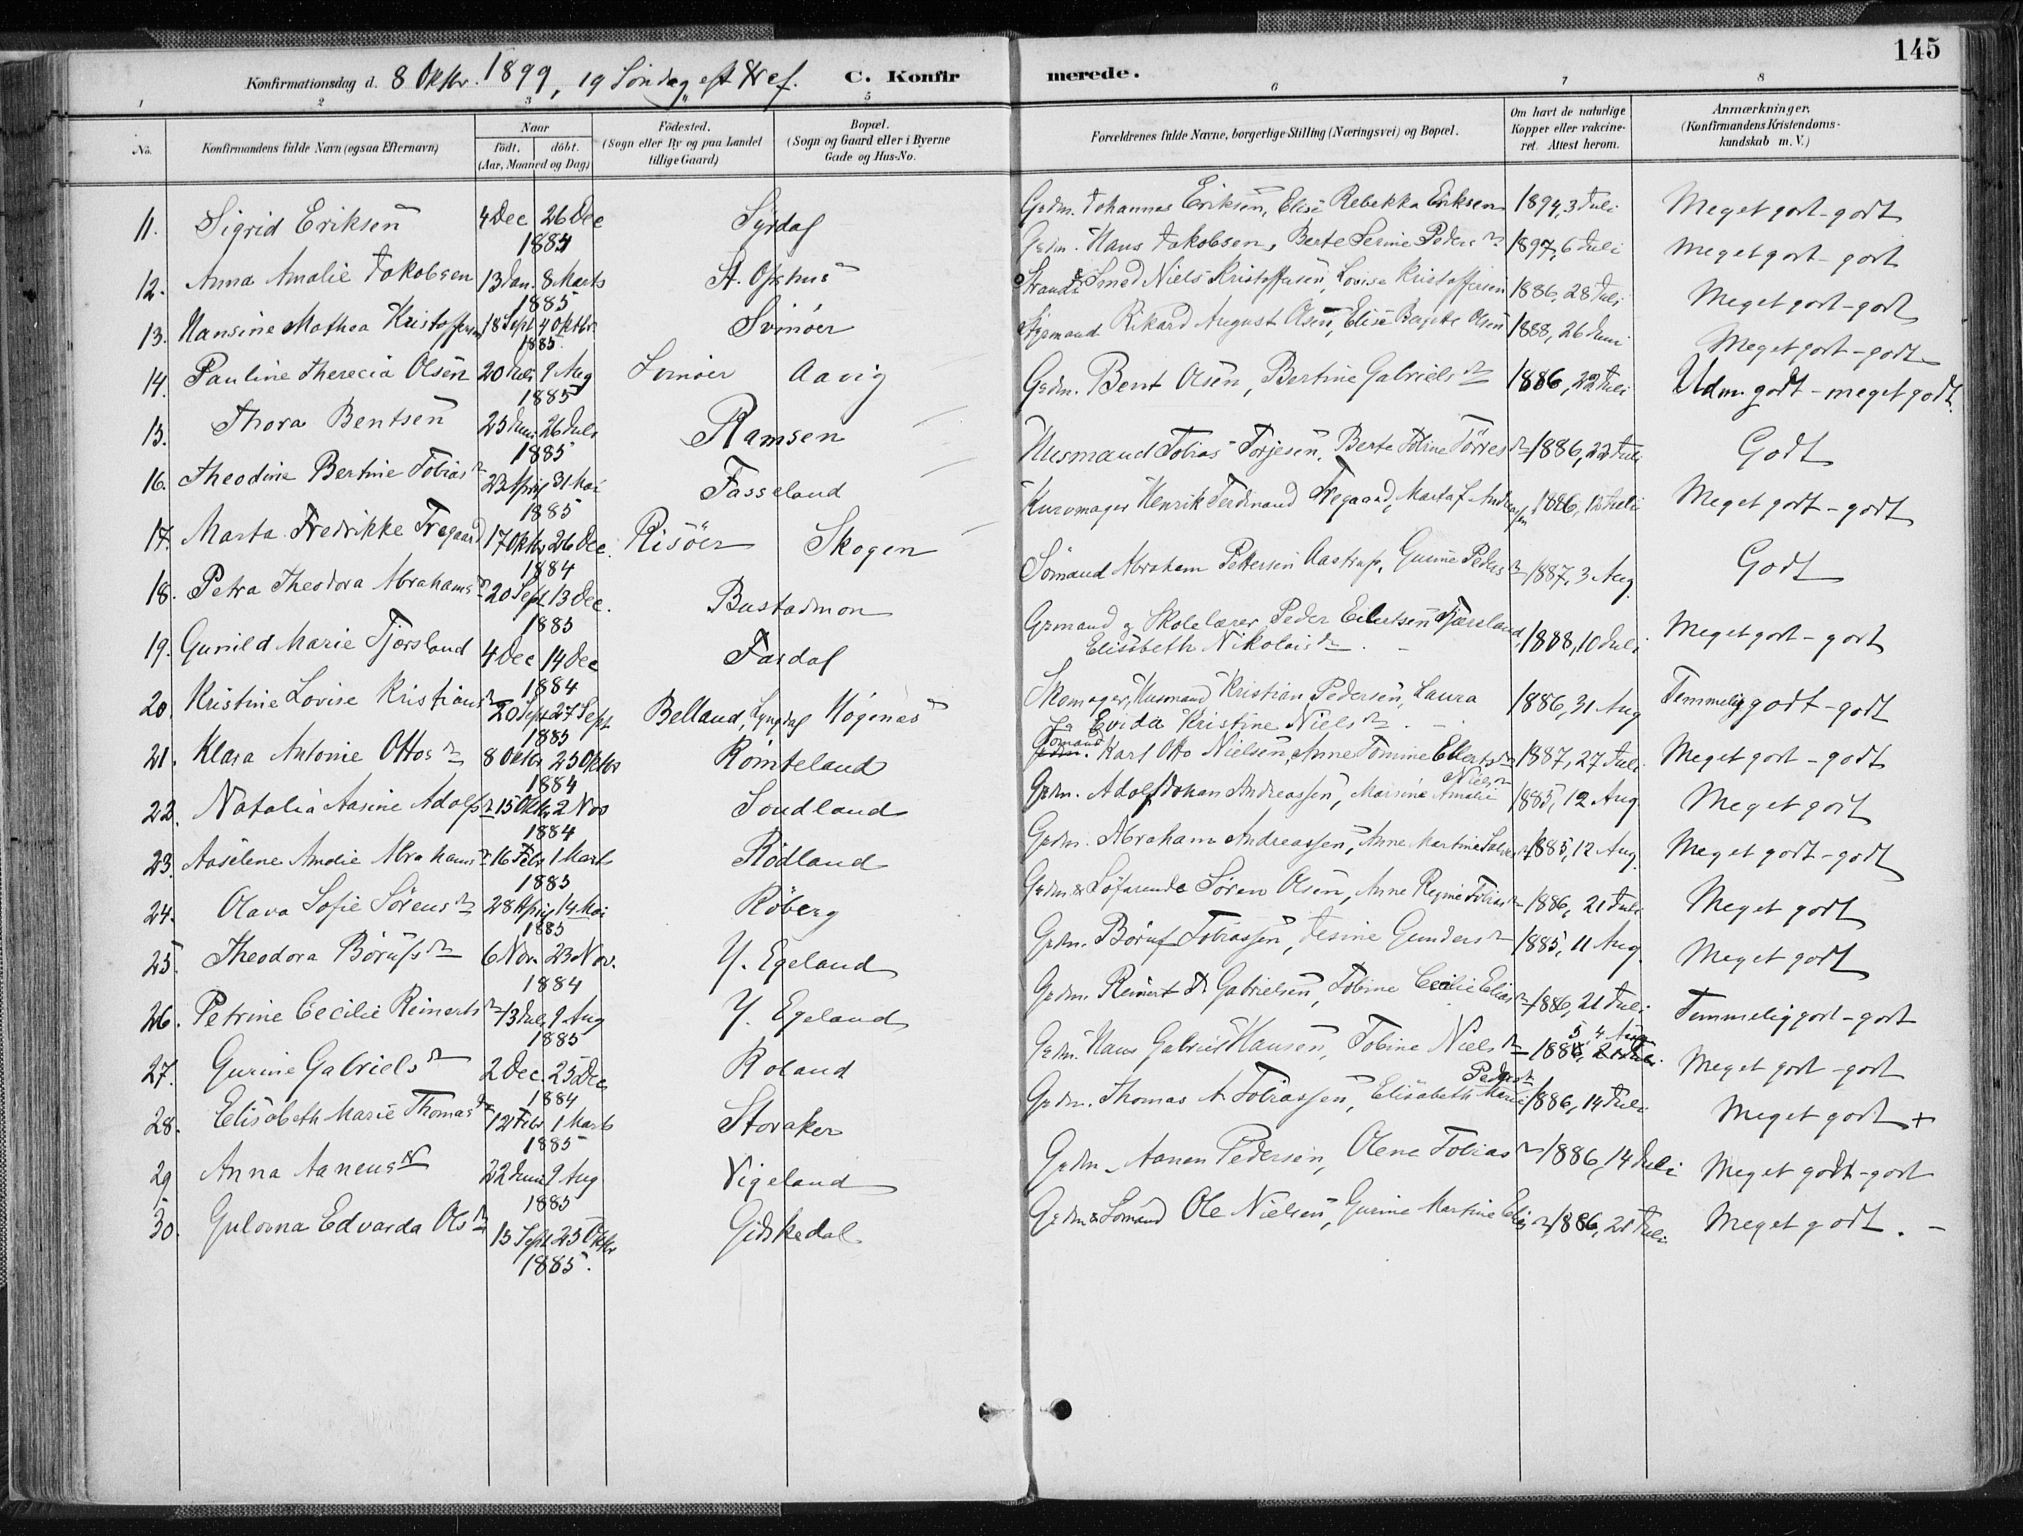 145
Konfirmationsdag d. 8 Oktbr. 1899, 19 Søndag eft Tref. C. Konfirmerede.
1 2 3 5 6 7 8
No. Konfirmandens fulde Navn (ogsaa Efternavn) Naar født. døbt. (Aar, Maaned og Dag) Fødested. (Sogn eller By og paa Landet tillige Gaard) Bopæl. (Sogn og Gaard eller i Byerne Gade og Hus-No. Forældrenes fulde Navne, borgerlige Stilling (Næringsvei) og Bopæl. Om havt de naturlige Kopper eller vakcineret. Attest herom. Anmærkninger. (Konfirmandens Kristendomskundskab m. V.)
11. Sigrid Eriksen 4 Dec 26 Dec 1884 Syrdal Grdm. Johannes Eriksen, Elise Rebekka Eriksen 1894, 3 Juli Meget godt - godt
12. Anna Amalie Jakobsen 13 Jan. 8 Marts 1885 St. Ophus Grdm. Hans Jakobsen, Berte Serine Pedersdtr 1897, 6 Juli Meget godt - godt
13. Hansine Mathea Kristoffersen 18 Sept 4 Oktbr 1885 Svinøer Smed Niels Kristoffersen, Lovise Kristoffersen 1886, 28 Juli Meget godt - godt
14. Pauline Therecia Olsen 20 Juli 9 Aug 1885 Svinøer Aavig Styrmand Rikard August Olsen, Elise Olsen 1888, 26 Juni Meget godt - godt
15. Thora Bentsen 25 Juni 26 Juli 1885 Ramsen Grdm. Bent Olsen, Bertine Gabrielsdtr 1886, 22 Juli Udm. godt - meget godt.
16. Theodine Bertine Tobiasdtr 22 April 31 Mai 1885 Fasseland Husmand Tobias Torjesen, Berte Tobine Tørresdtr 1886, 22 Juli Godt
17. Marta Fredrikke Fregaard 17 Oktbr 26 Dec. 1884 Risöer Skogen Kurvmager Henrik Ferdinand Fregaard, Marta F. Andreassen 1886, Juli Meget godt - godt
18. Petra Theodora Abrahamsdtr 20 Sept 13 Dec. 1885 Bustadmon Sömand Abraham Pettersen Aastrup, Gurine Pedersdtr 1887, 3 Aug. Godt
19. Gunild Marie Fjærsland 4 Dec 14 Dec 1884 Fardal Grmand og Skolelærer Peder Eilertsen Fjærsland, Elisabeth Nikolaisdtr. 1888, 10 Juli Meget godt - godt
20. Kristine Lovise Kristiansdtr 20 Sept 27 Sept 1885 Belland, Lyngdal Høgenæs Skomager, Husmand Kristian Pedersen, Laura Evida Kristine Nielsdtr. 1886, 31 Aug Temmelig godt - godt
21. Klara Antonie Ottosdtr 8 Oktbr 25 Oktbr 1884 Rømteland Grdm. Sömand Karl Otto Nielsen, Anne Tomine Ellertsdtr 1887, 27 Juli. Meget godt - godt
22. Natalia Aasine Adolfsdtr 15 Oktbr 2 Nov 1884 Soudland Grdm. Adolf Johan Andreassen, Maisine Amalie Nielsdtr 1885, 12 Aug. Meget godt
23. Aaselene Amalie Abrahamsdtr 16 Febr 1 Marts 1885 Rødland Grdm. Abraham Andreassen, Anne Martine 1885, 12 Aug. Meget godt - godt
24. Olava Sofie Sørensdtr 28 April 14 Mai 1885 Røberg Grdm. & Søfarende Søren Olsen, Anne Regine Tobiasdtr 1886, 21 Juli Meget godt
25. Theodora Børufsdtr 6 Nov. 23 Nov. 1884 Y. Egeland Grdm. Børuf Tobiassen, Jesine Gundersdtr 1885, 11 Aug. Meget godt
26. Petrine Cecilie Reinertsdtr 13 Juli 9 Aug 1885 Y. Egeland Grdm. Reinert Gabrielsen, Tobine Cecilie Eliasdtr 1886, 21 Juli Temmelig godt - godt
27. Gurine Gabrielsdtr 2 Dec. 25 Dec 1884 Roland Grdm. Hans Gabriel Hansen, Tobine Nielsdtr 1885, 4 Aug Meget godt - godt
28. Elisabeth Marie Thomasdtr 12 Febr 1 Marts 1885 Storaker Grdm. Thomas A Tobiassen, Elisabeth Marie Pedersdtr 1886, 14 Juli Meget godt +
29 Anna Aanensdtr 22 Juni 9 Aug 1885 Vigeland Grdm. Aanen Pedersen, Olene Tobiasdtr 1886, 14 Juli Meget godt - godt
30. Gulovna Edvarda Olsdtr 15 Sept 25 Oktbr 1885. Gidskedal Grdm & Sømand Ole Nielsen, Gurine Martine Eliasdtr 1886, 21 Juli Meget godt. -